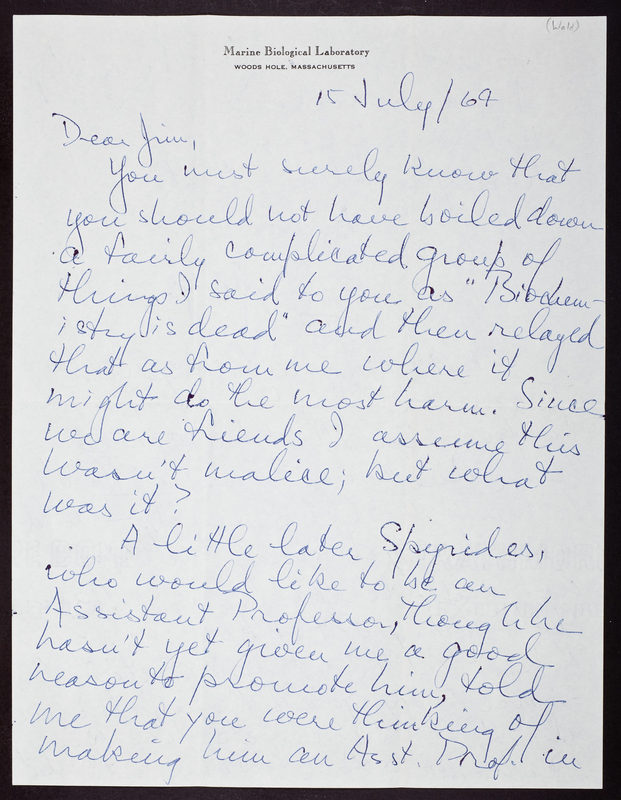 (Wald)
Marine Biological Laboratory
WOODS HOLE, MASSACHUSETTS
15 July/69
Dear Jim,
You must surely know that
you should not have boiled down
a fairly complicated group of
things I said to you as "Biochem-
istry is dead" and then relayed
that as from me where it
might do the most harm. Since
we are friends I assume this
wasn't malice; but what
was it?
A little later Spyrides,
who would like to be an
Assistant Professor, though he
hasn't yet given me a good
reason to promote him, told
me that you were thinking of
making him an Asst. Prof. in